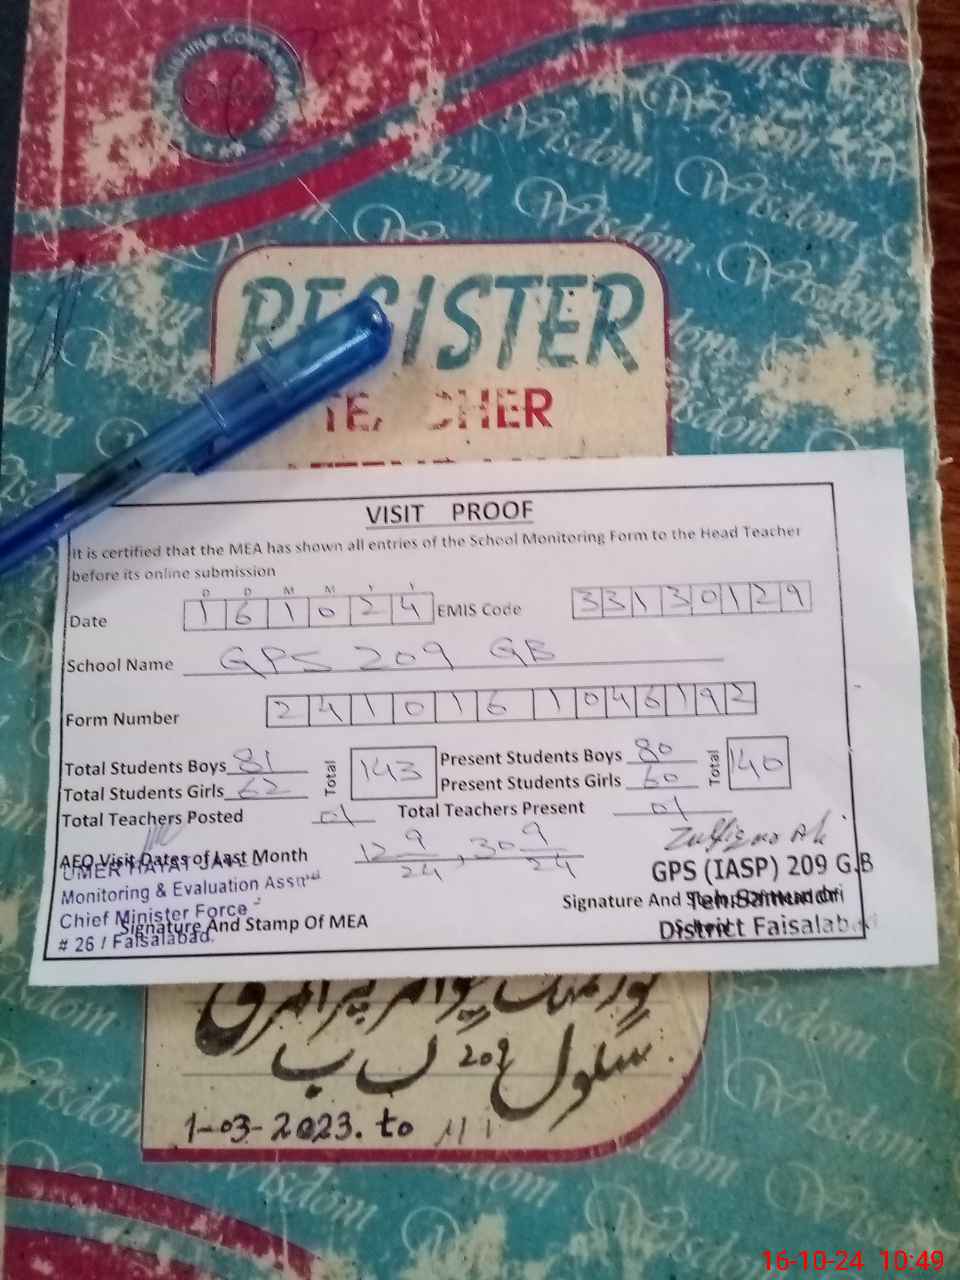 REGISTER
TEACHER
Wisdom
VISIT PROOF
It is certified that the MEA has shown all entries of the School Monitoring Form to the Head Teacher
before its online submission
D D M M Y Y
Date 1 6 1 0 2 4 EMIS Code 3 3 1 3 0 1 2 9
School Name GPS 209 GB
Form Number 2 4 1 0 1 6 1 0 4 6 1 9 2
Total Students Boys 81 Total 143 Present Students Boys 80 Total 140
Total Students Girls 62 Present Students Girls 60
Total Teachers Posted 01 Total Teachers Present 01
AEO Visit Dates of Last Month 12 9/24, 30 9/24
UMER HAYAT
Monitoring & Evaluation Asstt
Chief Minister Force
# 26 / Faisalabad.
Signature And Stamp Of MEA
GPS (IASP) 209 G.B
Signature And
Teh: Samundri
District Faisalabad
پرائمری
سکول 209 گ ب
1-03-2023. to
16-10-24 10:49